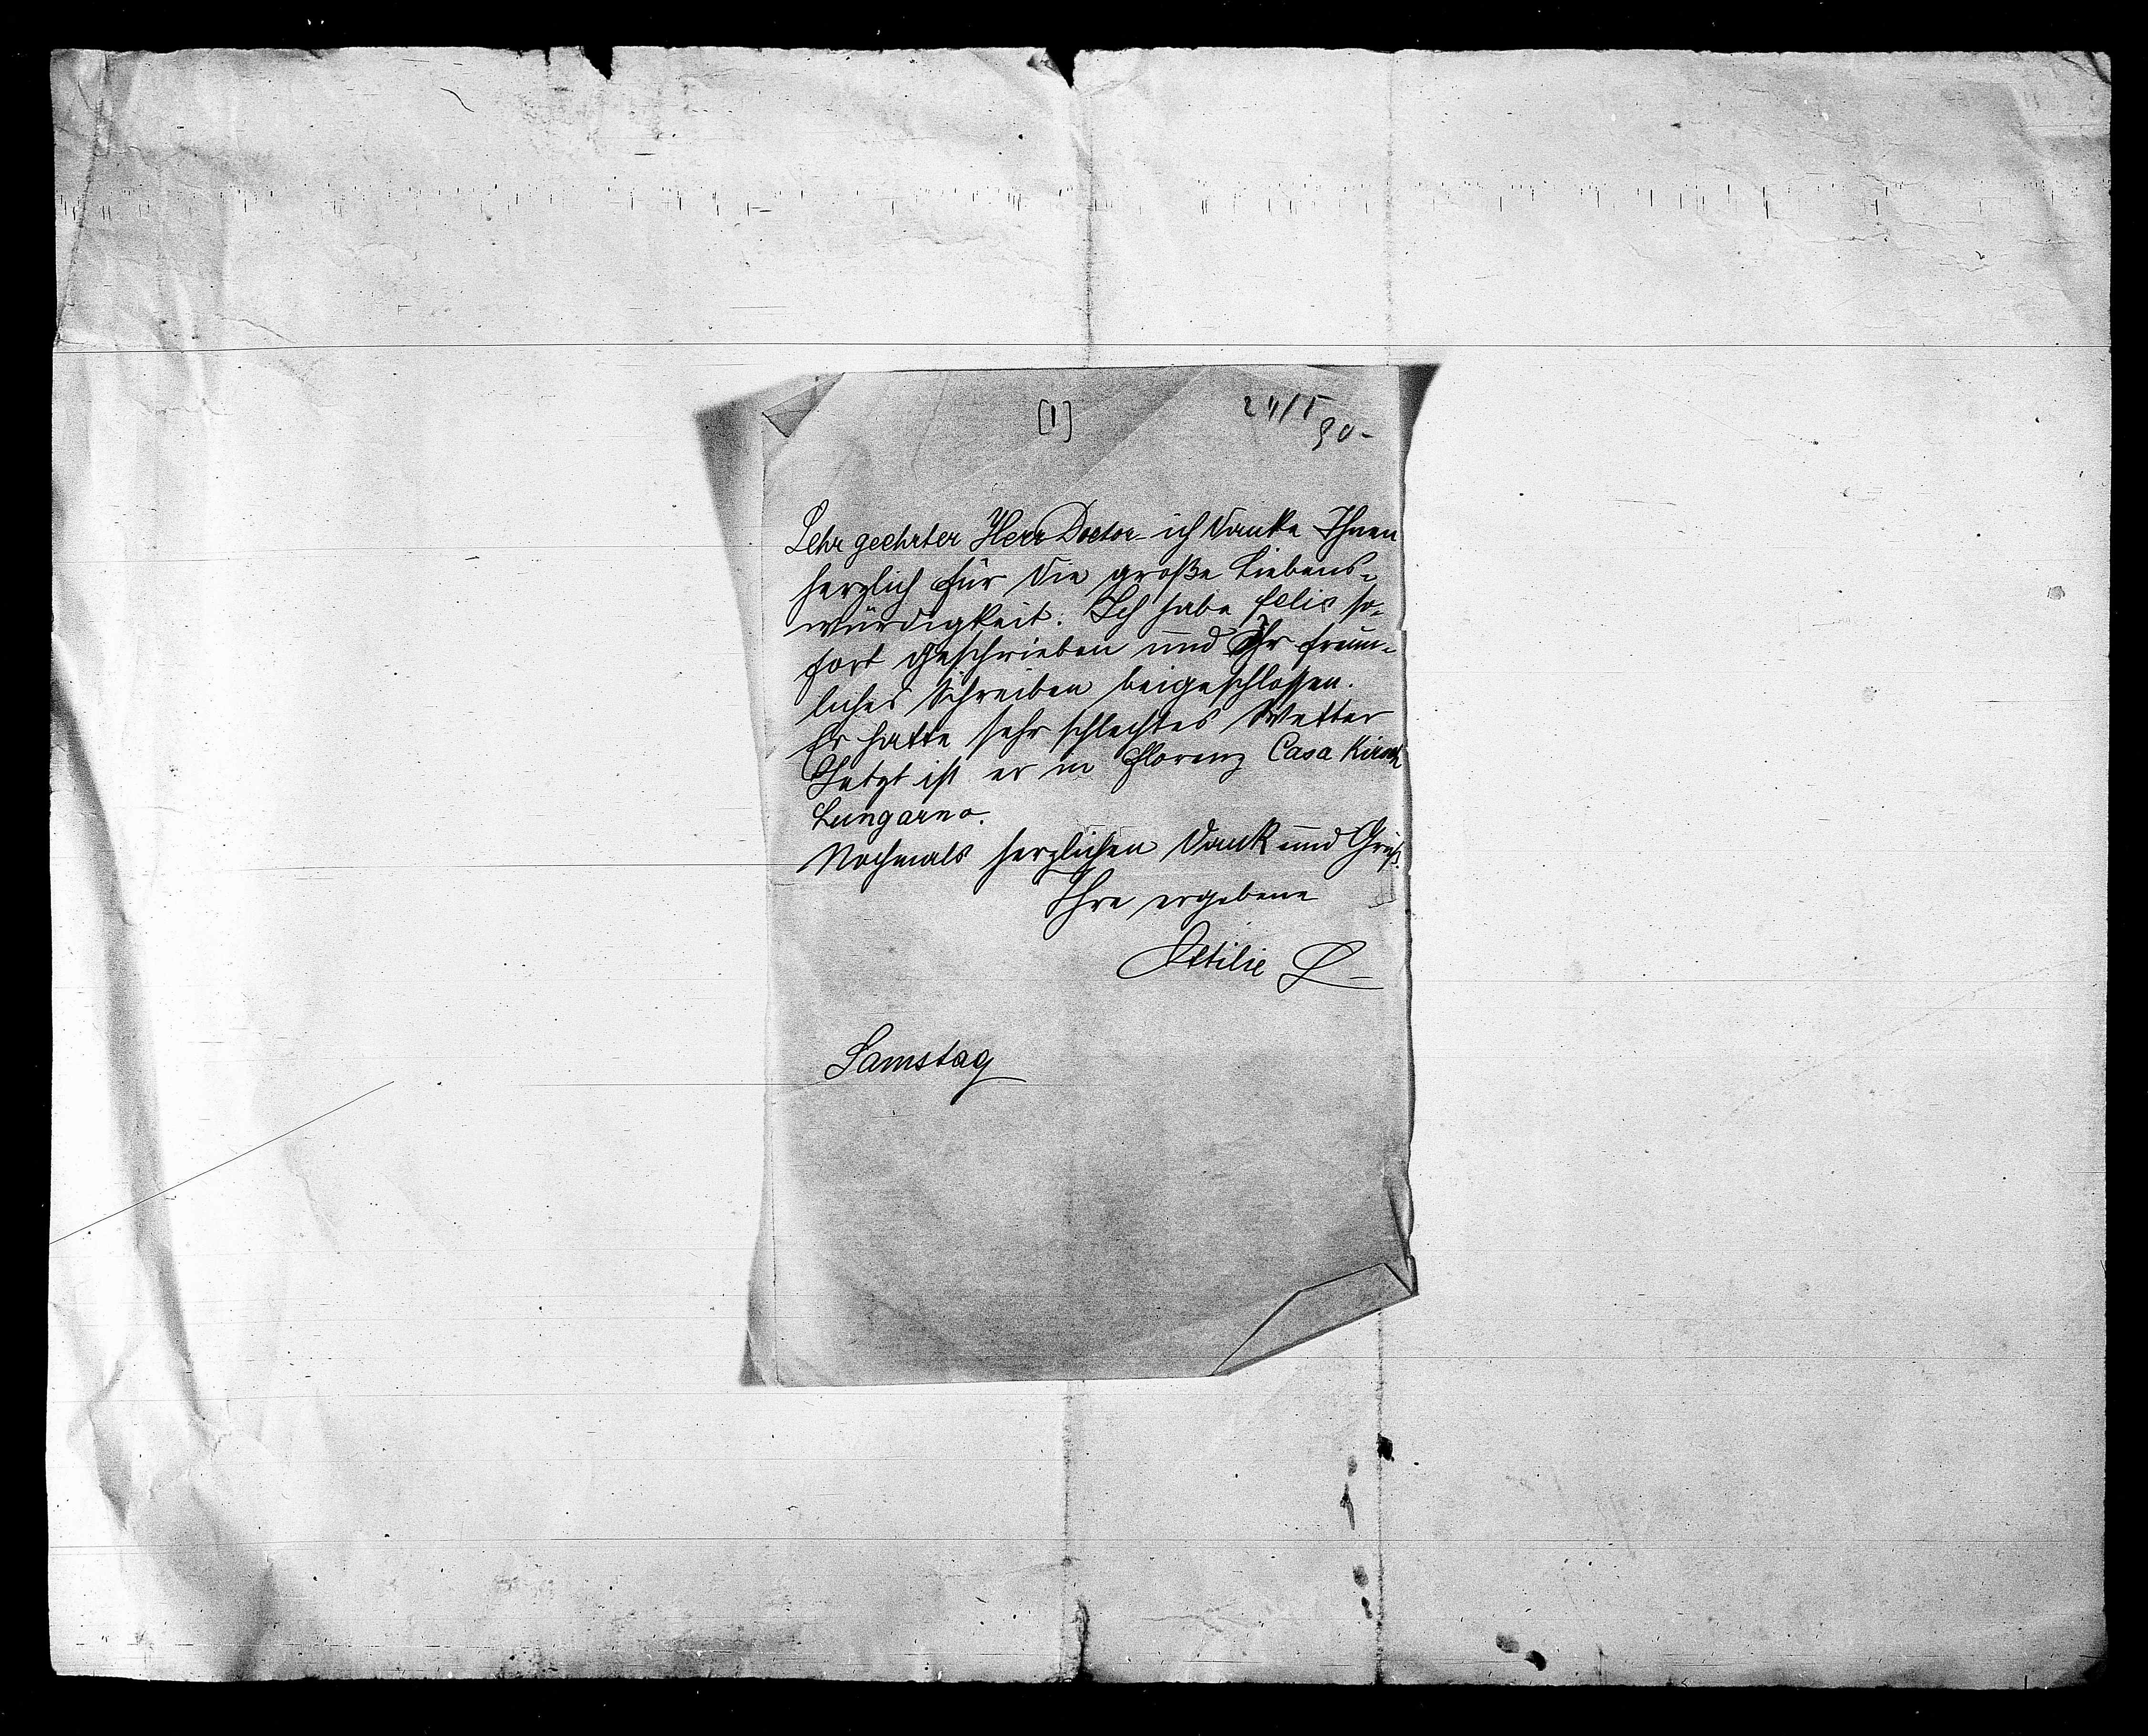 [1]
24/5
90-
Sehr geehrter Herr Doctor ich danke Ihnen
herzlich für die große Liebens-
würdigkeit. Ich habe Felix so-
fort geschrieben und Ihr freun-
liches Schreiben beigeschlossen.
Er hatte sehr schlechtes Wetter
Jetzt ist er in Florenz Casa
Lungarno.
Nochmals herzlichen Dank und Gruß.
Ihre ergebene
Ottilie S
Samstag